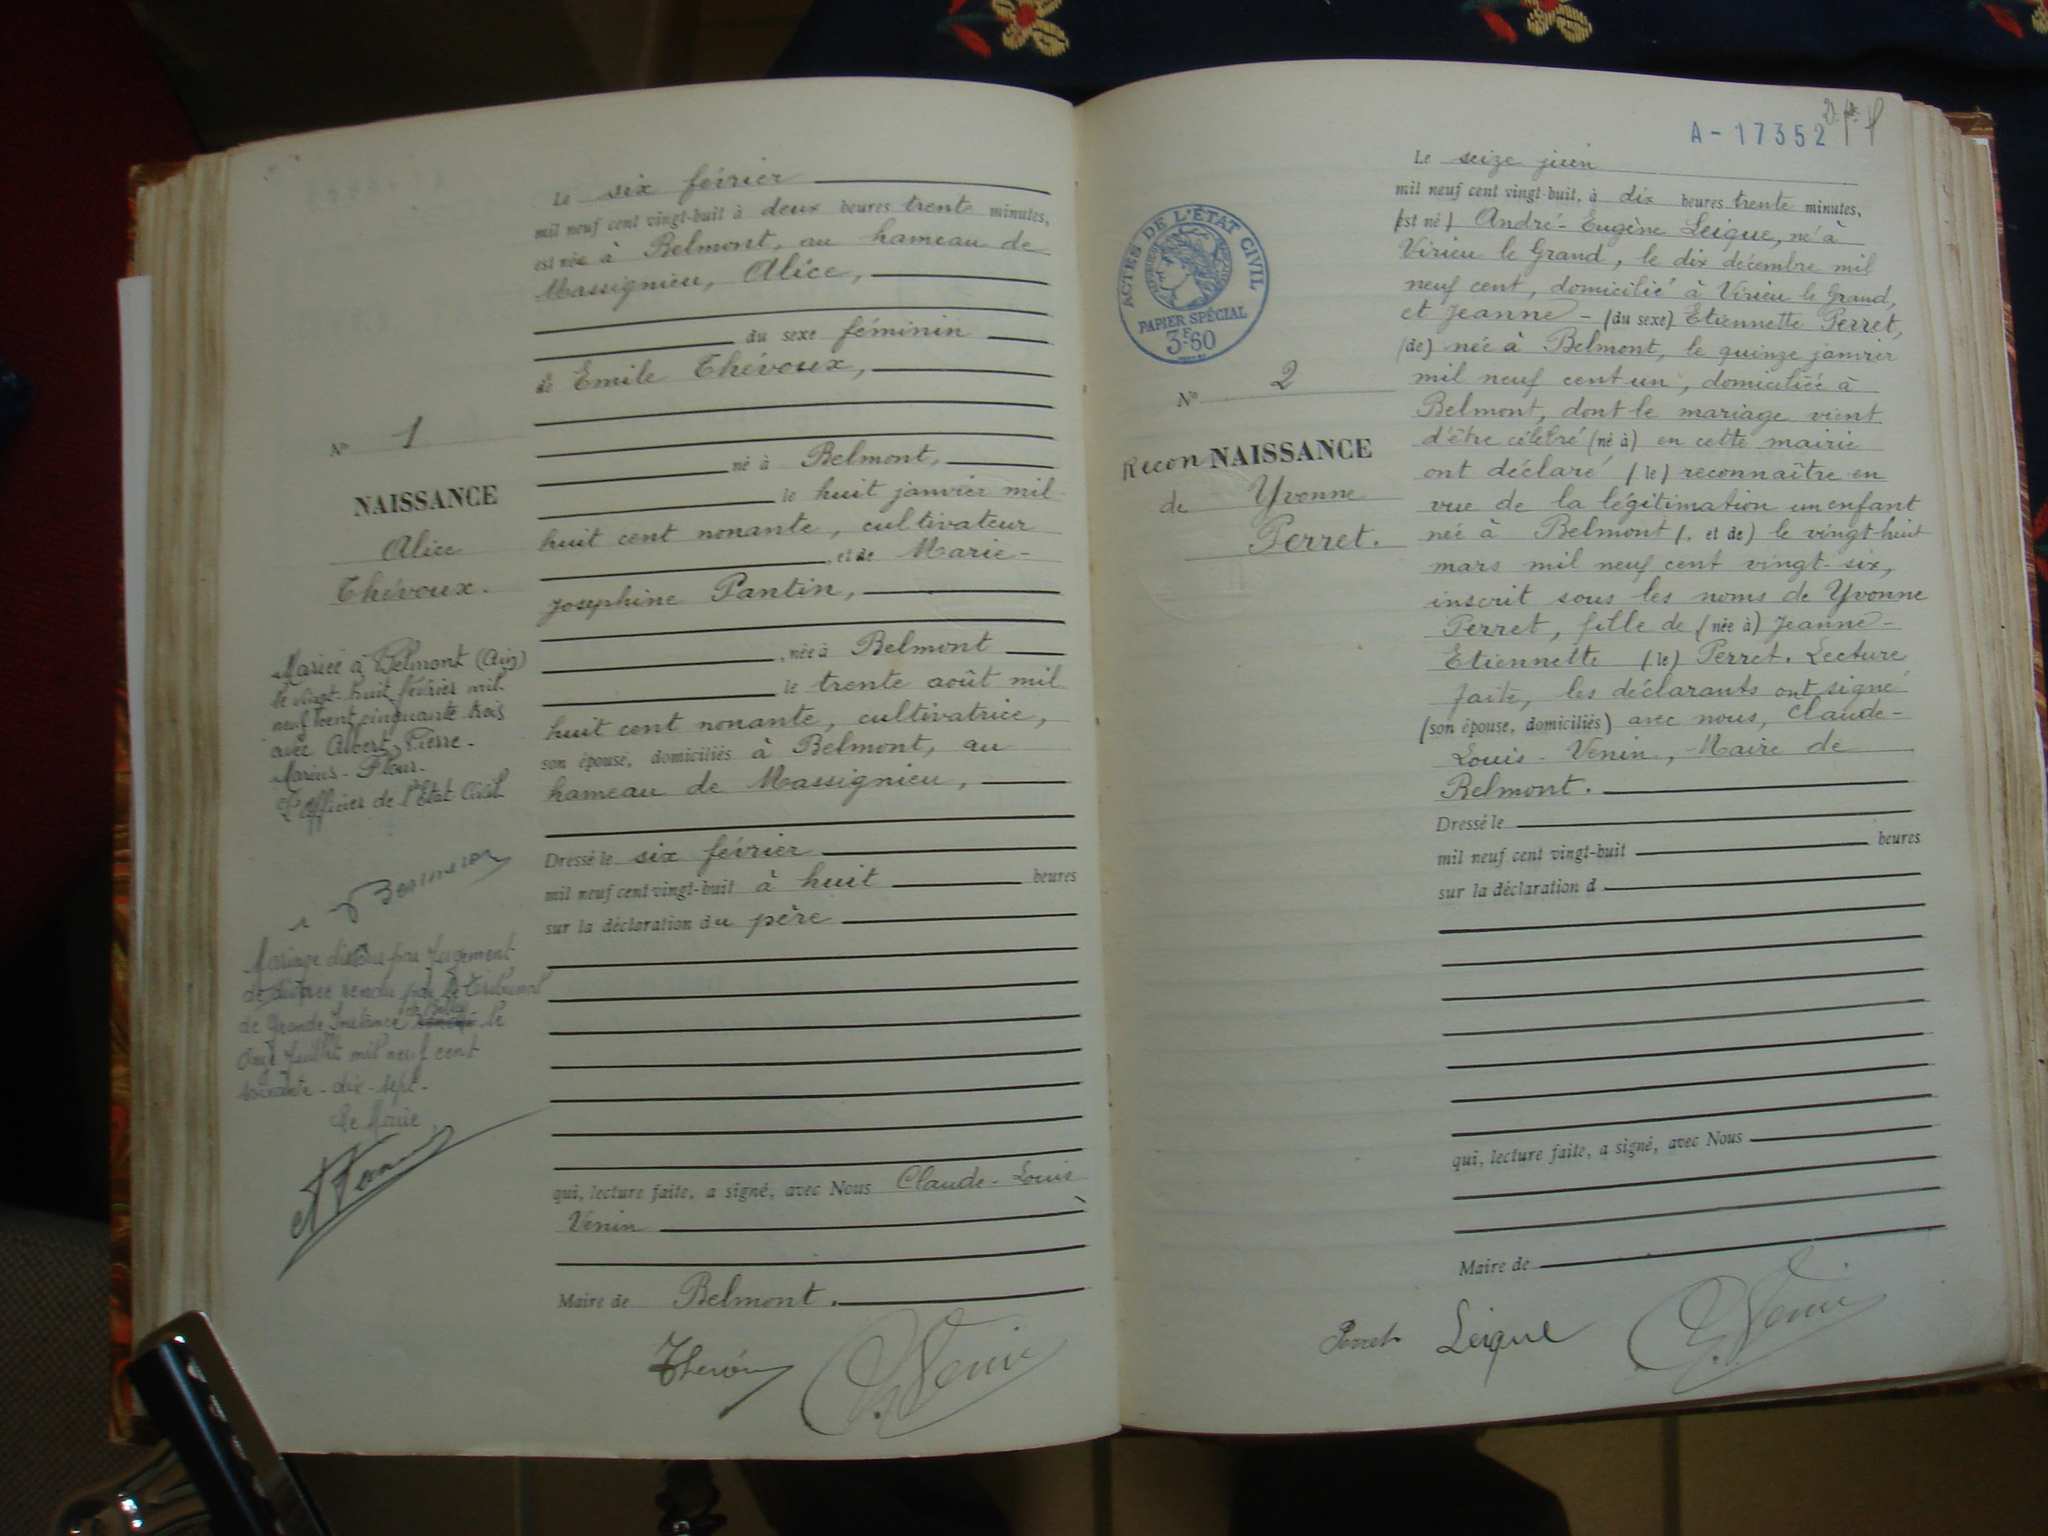 Le six février
mil neuf cent vingt-huit à deux heures trente minutes,
est née à Belmont, au hameau de
Massignieu, Alice,
du sexe féminin
de Emile Thévoux,
né à Belmont,
le huit janvier mil
huit cent nonante, cultivateur
, et de Marie-
Josephine Pantin,
, née à Belmont
le trente août mil
huit cent nonante, cultivatrice,
son épouse, domiciliés à Belmont, au
hameau de Massignieu,
Dressé le six février
mil neuf cent vingt-huit à huit heures
sur la déclaration du père
qui, lecture faite, a signé, avec Nous Claude-Louis
Venin
Maire de Belmont.
N° 1
NAISSANCE
Alice
Thévoux.
Mariée à Belmont (Ain)
le vingt-huit février mil
neuf cent cinquante trois
avec Albert, Pierre-
Marius-
L'officier de l'Etat Civil
Mariage dissou par Jugement
de divorce rendu par le Tribunal
de Grande Instance de Belley le
onze Juillet mil neuf cent
soixante-dix-sept-
Le Maire
A-17352
Le seize juin
mil neuf cent vingt-huit, à dix heures trente minutes,
(est né) André-Eugène Leique, né à
Virieu le Grand, le dix décembre mil
neuf cent, domicilié à Virieu le Grand,
et Jeanne- (du sexe) Etiennette Perret,
(de) née à Belmont, le quinze janvier
mil neuf cent un, domiciliée à
Belmont, dont le mariage vient
d'être célébré (né à) en cette mairie
ont déclaré (le) reconnaître en
vue de la légitimation un enfant
née à Belmont (, et de) le vingt-huit
mars mil neuf cent vingt-six,
inscrit sous les noms de Yvonne
Perret, fille de (née à) Jeanne-
Etiennette (le) Perret. Lecture
faite, les déclarants ont signé
(son épouse, domiciliés) avec nous, Claude-
Louis-Venin, Maire de
Belmont.
Dressé le
mil neuf cent vingt-huit heures
sur la déclaration d
qui, lecture faite, a signé, avec Nous
Maire de
Perret Leique
ACTES DE L'ÉTAT CIVIL
PAPIER SPÉCIAL
3F60
N° 2
Recon NAISSANCE
de Yvonne
Perret.